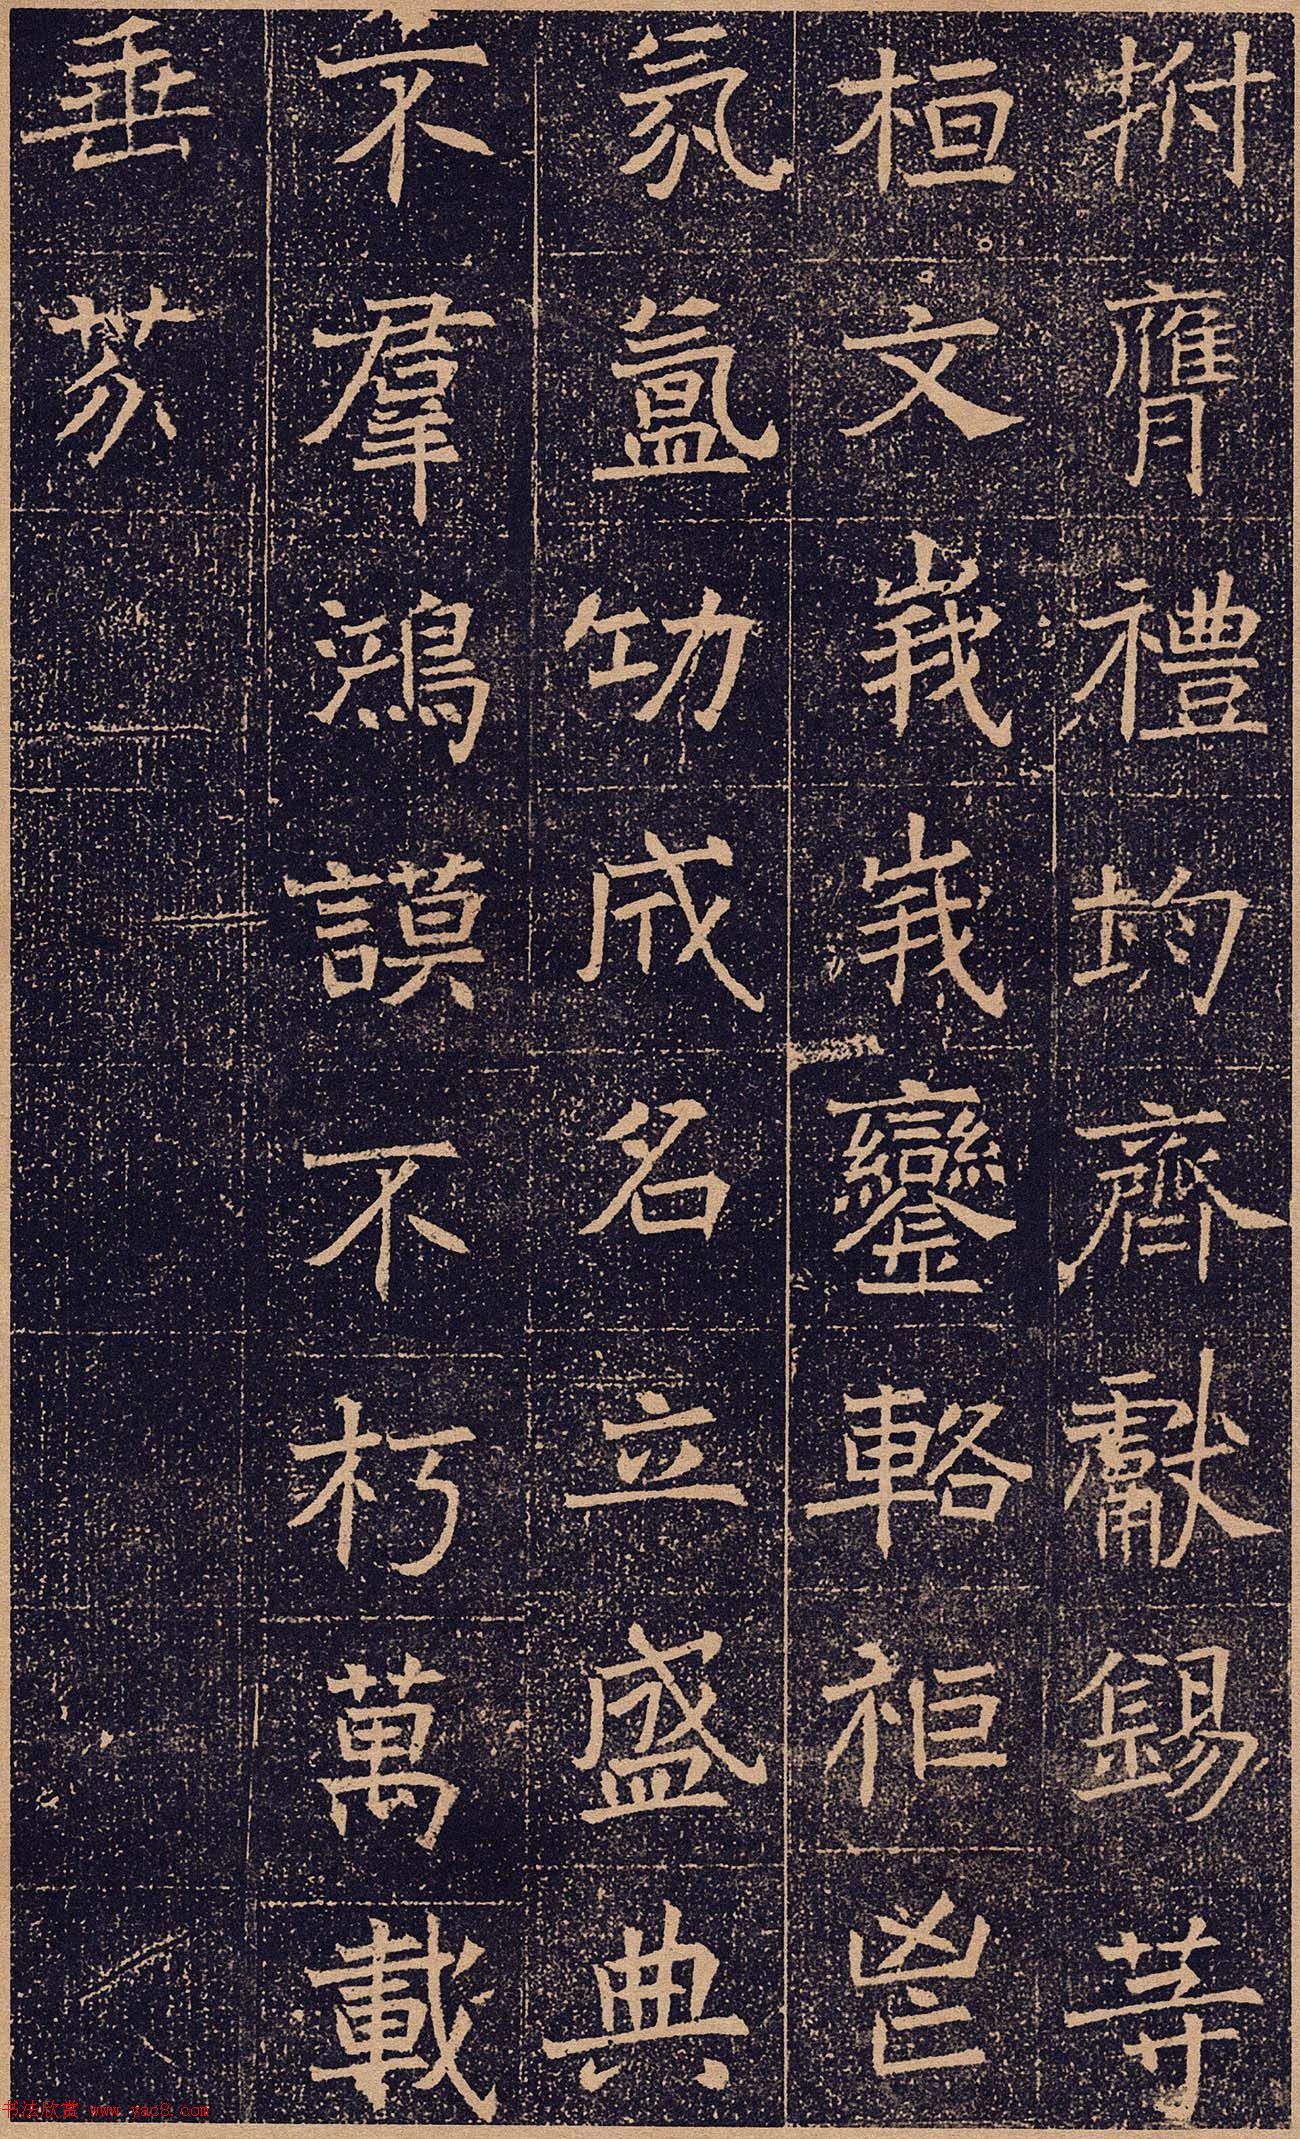 拊膺禮均齊獻錫等
桓文峩峩鑾輅秬鬯
氛氳功成名立盛典
不羣鴻謨不朽萬載
垂芬
书法欣赏 www.yac8.com